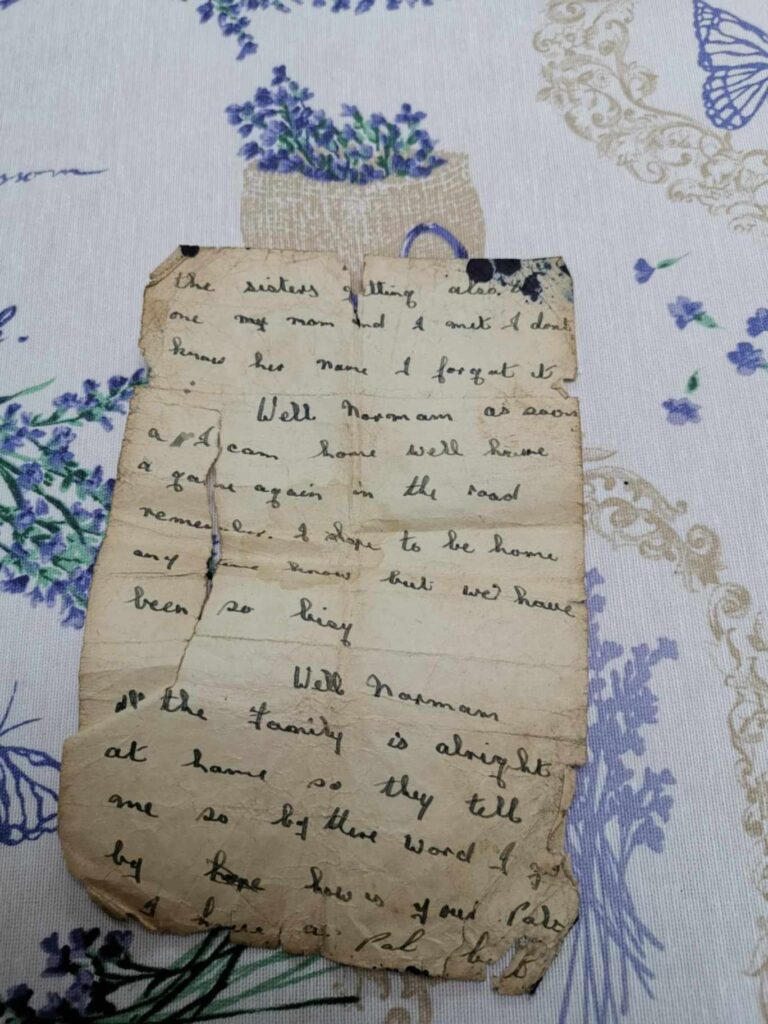 ssom
the sisters getting also.
one my mom and I met I dont
know her name I forgot it
Well Normam as soon
a I cam home well have
a game again in the road
remember. I hope to be home
any know but we'd have
been so bisy
Well Normam
all the family is alright
at home so they tell
me so by there word I go
by how is your Pal
I have a Pal